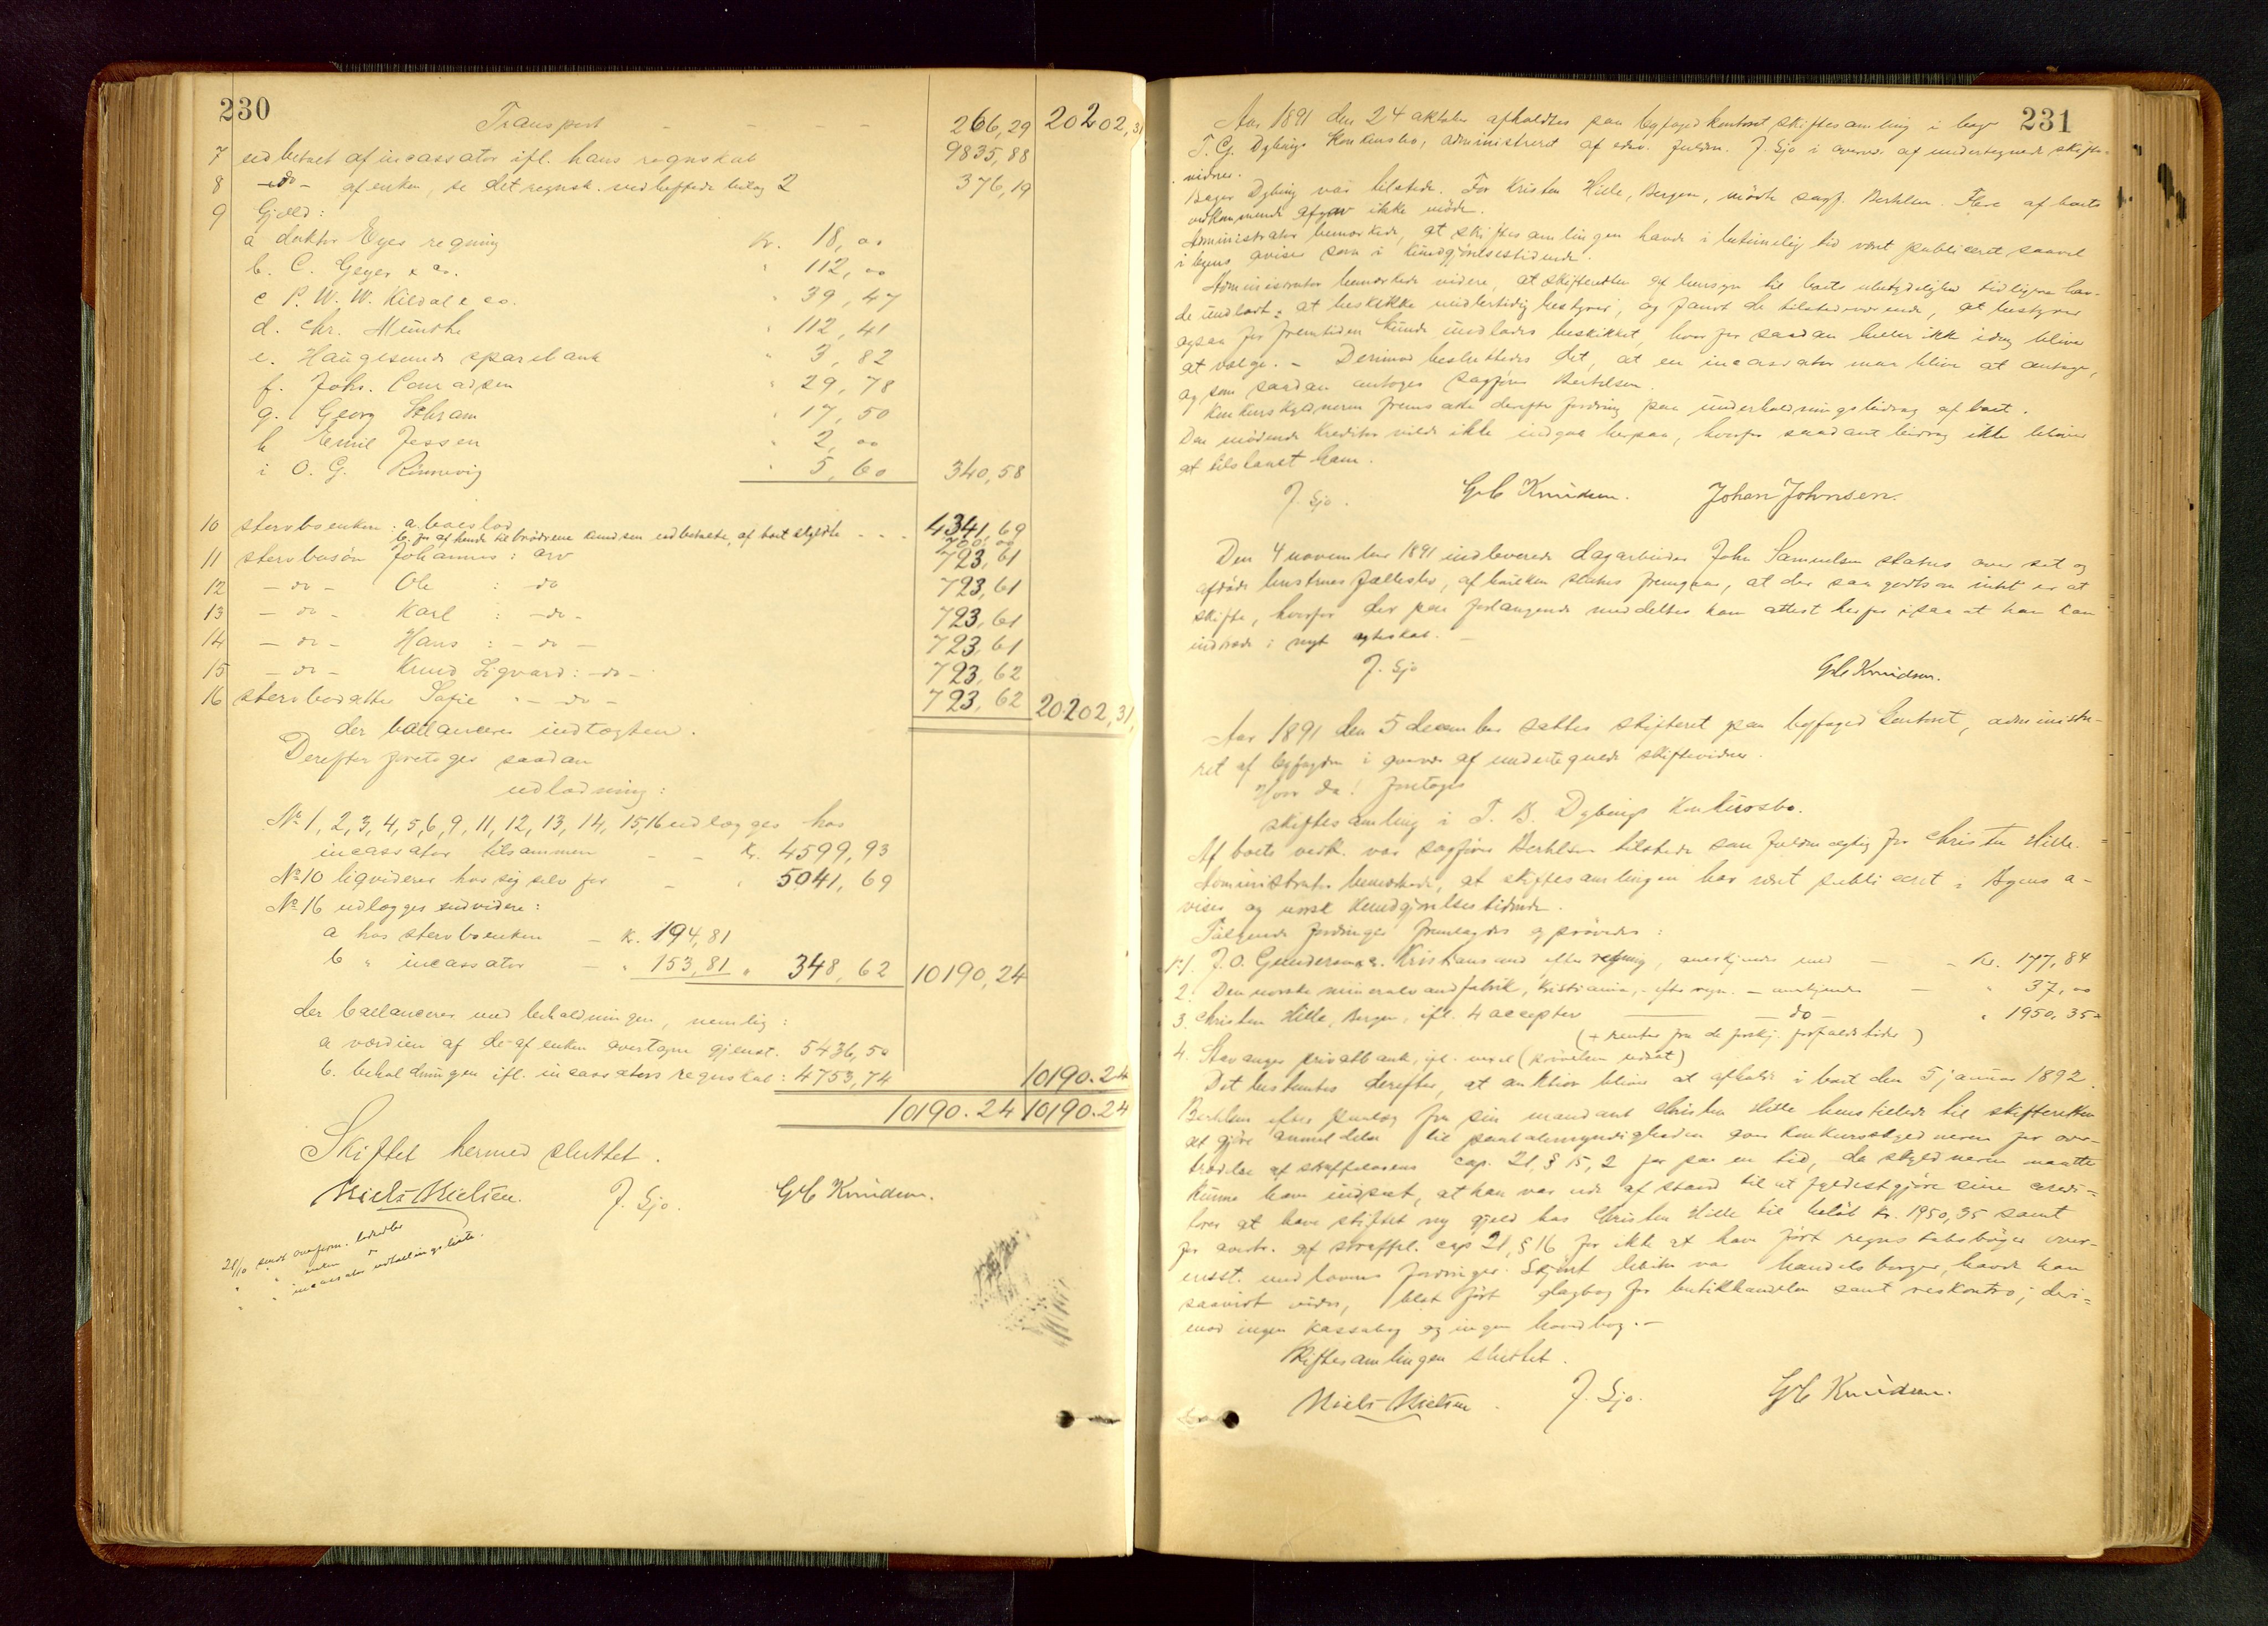 230
Transport - - - - 266,29 20202,31
7 udbetalt af incassator ifl. hans regnskab 9835,88
8 -do- af enken, se det regnsk. vedheftede bilag 2 376,19
9 Gjæld:
a doktor Eyes regning Kr. 18,00
b. C. Geyer & co. " 112,00
c P. W. W. Kildal & co. " 39,47
d. Chr. Munthe " 112,41
e. Haugesunds sparebank " 3,82
f. Johs. Conradsen " 29,78
g. Georg Schram " 17,50
h Emil Jessen " 2,00
i O. G. Rönnevig " 5,60 340,58
10 stervboenken: a. boeslod 4341,69
b. for af hende til brödrene Knudsen indbetalte, af boet skyldte - - - 700,00
11 stervbosön Johannes: arv 723,61
12 - do - Ole : do 723,61
13 - do - Karl : -do- 723,61
14 - do - Hans : - do - 723,61
15 - do - Knud Sigvard: -do- 723,62
16 stervbodatter Sofie - do - 723,62 20202,31
der ballancerer indtægten.
Derefter foretoges saadan
udlodning:
No 1, 2, 3, 4, 5, 6, 9, 11, 12, 13, 14, 15, 16 udlægges hos
incassator tilsammen - - Kr. 4599,93
No 10 ligviderer hos sig selv for - " 5041,69
No 16 udlægges endvidere:
a hos stervboenken - Kr. 194,81
b " incassator - " 153,81 " 348,62 10190,24
der ballancerer med beholdningen, nemlig:
a værdien af de af enken overtagne gjenst. 5436,50
b. beholdningen ifl. incassators regnskab: 4753,74 10190.24
10190.24 10190.24
Skiftet hermed sluttet.
Niels Nielsen. J. Sjo. GC Knudsen.
21/10 sendt overform.
" " enken do
" " incassator udlodningsliste.
231
Aar 1891 den 24 oktober afholdtes paa byfogedkontoret skiftesamling i bager
T. G. Dybings konkursbo, administreret af edsv. fuldm. J. Sjo i overvær af undertegnede skifte-
vidner.
Bager Dybing var tilstede. For Kristen Hille, Bergen, mödte sagf. Berthelsen. Flere af boets
vedkommende afgav ikke möde.
Administrator bemærkede, at skiftesamlingen havde i betimelig tid været publiceret saavel
i byens aviser som i kundgjörelsestidende.
Administrator bemærkede videre, at skifteretten af hensyn til boets ubetydelighed tidligere hav-
de undladt at beskikke midlertidig bestyrer, og fandt de tilstedeværende, at bestyrer
ogsaa for fremtiden kunde undlades beskikket, hvorfor saadan heller ikke idag bliver
at vælge. - Derimod besluttedes det, at en incassator maa blive at antage,
og som saadan antoges sagförer Berthelsen.
Konkursskyldneren fremsatte derefter fordring paa underholdningsbidrag af boet.
Den mödende kreditor vilde ikke indgaa herpaa, hvorfor saadant bidrag ikke bliver
at tilstaaet ham.
J. Sjo. GC Knudsen. Johan Johnsen.
Den 4 november 1891 indleverede dagarbeider John Samuelsen status over sit og
afdöde hustrues fællesbo, af hvilken status fremgaar, at der saa godtsom intet er at
skifte, hvorfor der paa forlangende meddeltes ham attest herfor ifaa at han kan
indtræde i nyt egteskab. -
J. Sjo GC Knudsen.
Aar 1891 den 5 december sattes skifteret paa byfoged kontoret, administre-
ret af byfogden i overvær af undertegnede skiftevidner.
Hvor da! foretoges
skiftesamling i T. B. Dybings konkursbo.
Af boets vedk. var sagförer Berthelsen tilstede som fuldmægtig for Christen Hille.
Administrator bemærkede, at skiftesamlingen har været publiceret i byens a-
viser og norsk kundgjörelsestidende.
Fölgende fordringer fremlagdes og prövedes:
No 1. J. O. Gundersen, Kristiansund efter regning, anerkjendes med - - Kr. 177,84
2. Den norske mineralvandfabrik, Kristiania, - efter regn. - anerkjendes - " 37,00
3. Christen Hille, Bergen, ifl. 4 accepter -do- " 1950,35
(+ renter fra de forskj. forfaldstider)
4. Stavanger privatbank, ifl. vexel (prövelsen udsat)
Det bestemtes derefter, at auktion bliver at afholde i boet den 5 januar 1892.
Berthelsen efter paalæg fra sin mandant Christen Hille henstillede til skifteretten
at gjöre anmeldelse til paatalemyndigheden over konkursskyldneren for over-
trædelse af straffelovens cap. 21, § 15, 2 for paa en tid, da skyldneren maatte
kunne have indseet, at han var ude af stand til at fyldestgjöre sine credi-
torer at have stiftet ny gjæld hos Christen Hille til beløb Kr. 1950,35 samt
for overtr. af straffel. cap 21, § 16 for ikke at have fört regnskabsböger over-
ensst. med lovens fordringer. Skjönt debitor var handelsborger, havde han
saavidt vides, blot fört dagbog for butikhandelen samt reskontro; deri-
mod ingen kassabog og ingen hovedbog. -
Skiftesamlingen sluttet.
Niels Nielsen. J. Sjo. GC Knudsen.